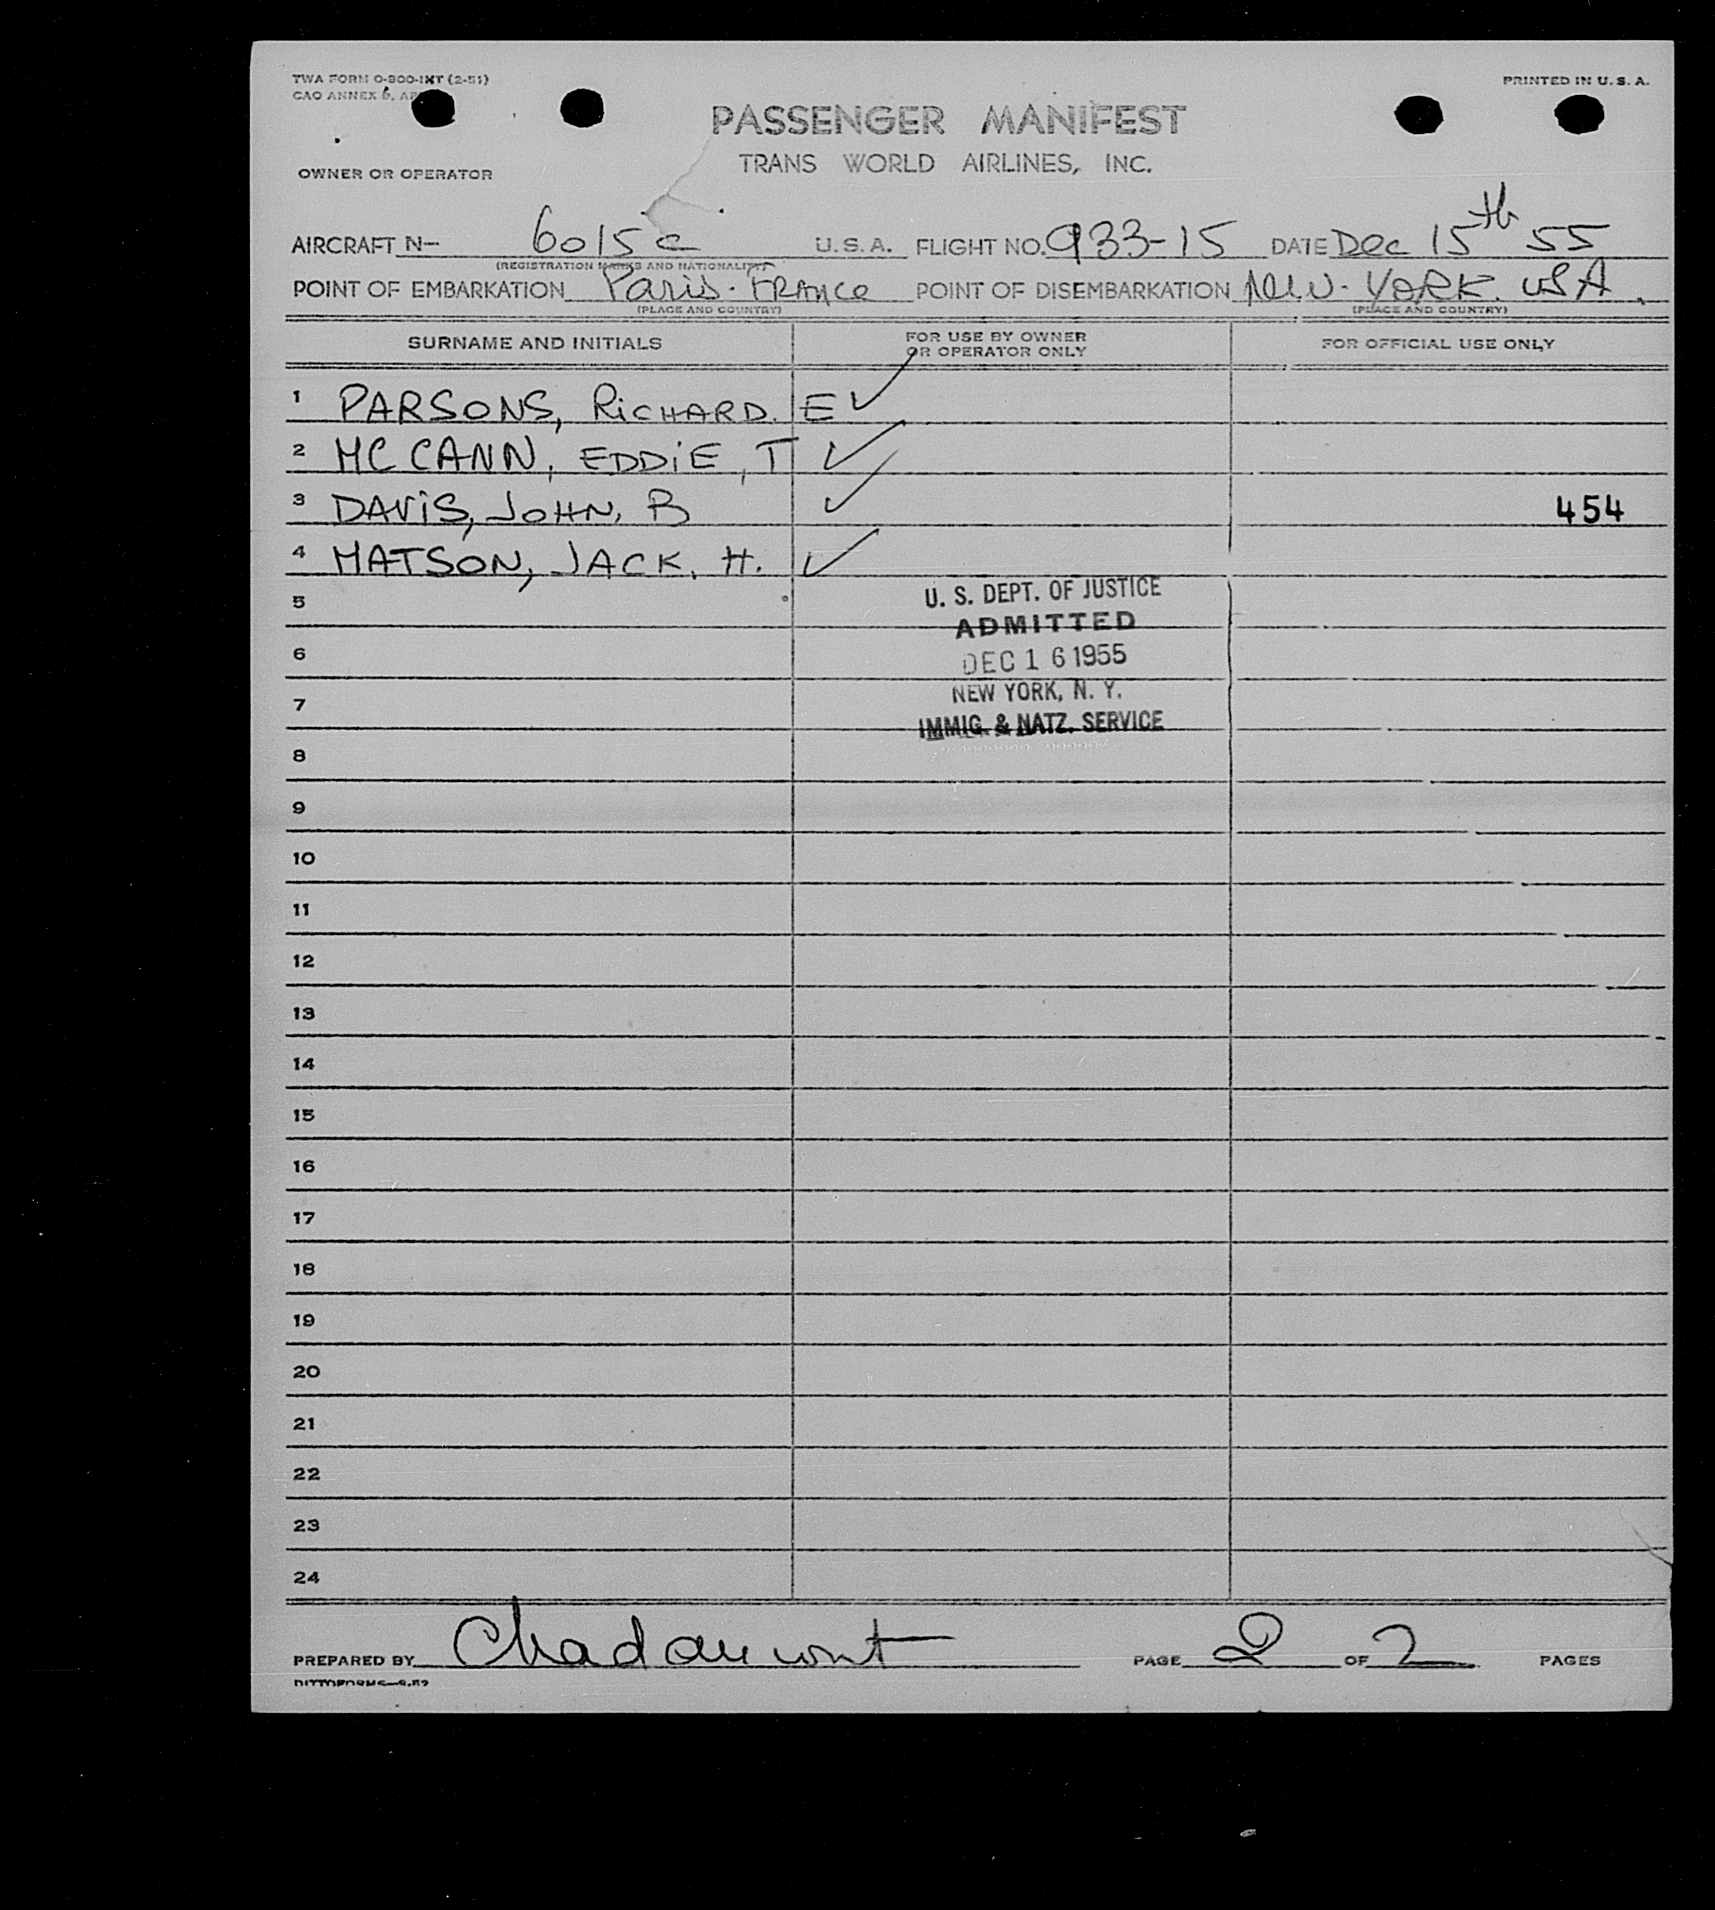 TWA FORM O-800-INT (2-51)
PRINTED IN U. S. A.
CAO ANNEX 6, AP
PASSENGER MANIFEST
TRANS WORLD AIRLINES, INC.
OWNER OR OPERATOR
AIRCRAFT N- 6015C U.S.A. FLIGHT NO. 933-15 DATE Dec 15th 55
(REGISTRATION MARKS AND NATIONALITY)
POINT OF EMBARKATION Paris. FRANCE POINT OF DISEMBARKATION New-YORK. USA.
(PLACE AND COUNTRY) (PLACE AND COUNTRY)
SURNAME AND INITIALS FOR USE BY OWNER OR OPERATOR ONLY FOR OFFICIAL USE ONLY
1 PARSONS, RiCHARD. E ✓
2 MC CANN, EDDiE, T ✓
3 DAViS, JOHN, B ✓ 454
4 MATSON, JACK, H. ✓
5
U. S. DEPT. OF JUSTICE
ADMITTED
6
DEC 16 1955
7
NEW YORK, N. Y.
IMMIG. & NATZ. SERVICE
8
9
10
11
12
13
14
15
16
17
18
19
20
21
22
23
24
PREPARED BY PAGE 2 OF 2 PAGES
DITTOFORMS—9-52